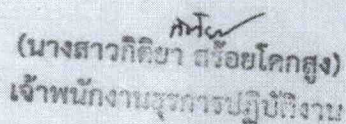 (นางสาวกิติยา สร้อยโคกสูง)
เจ้าพนักงานธุรการปฏิบัติงาน